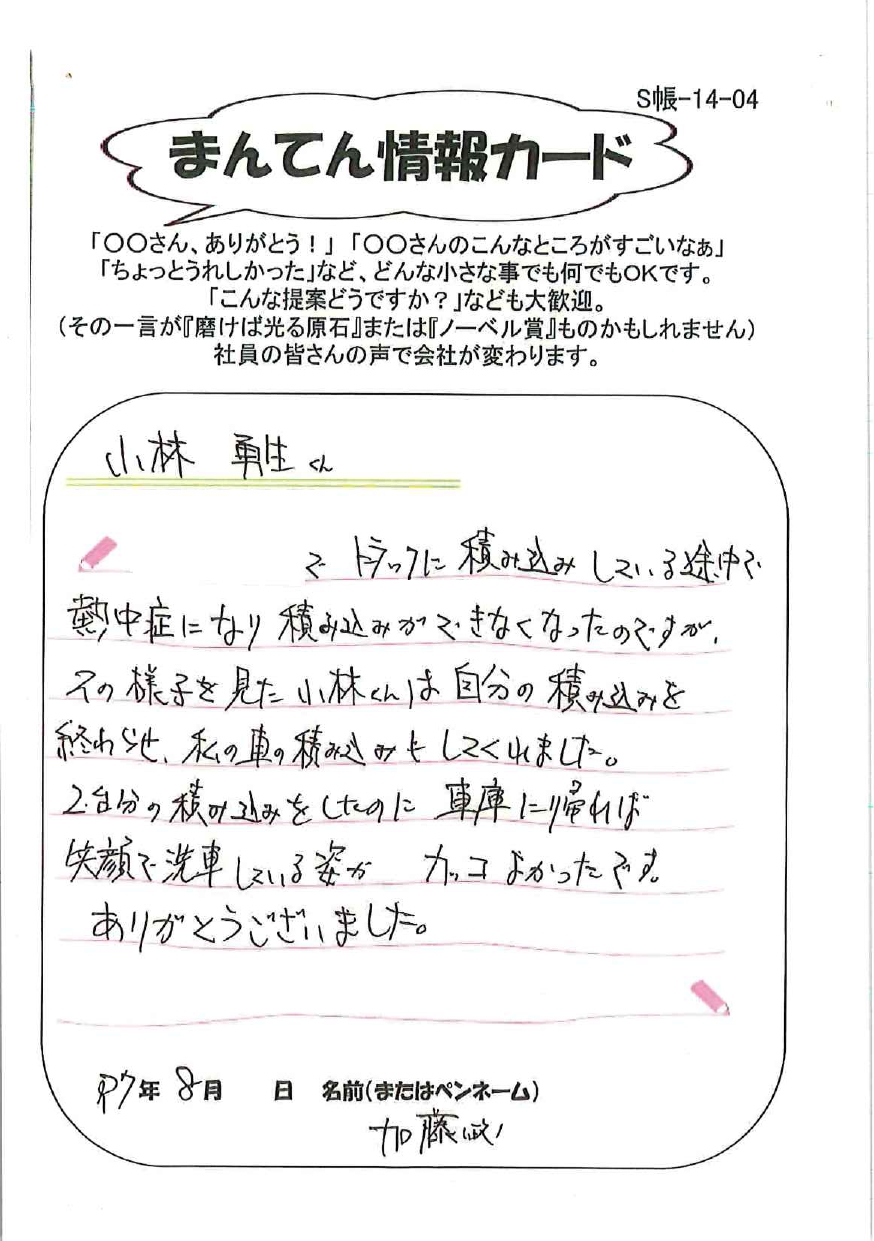 S帳-14-04
まんてん情報カード
「〇〇さん、ありがとう！」「〇〇さんのこんなところがすごいなぁ」
「ちょっとうれしかった」など、どんな小さな事でも何でもOKです。
「こんな提案どうですか？」なども大歓迎。
(その一言が『磨けば光る原石』または『ノーベル賞』ものかもしれません)
社員の皆さんの声で会社が変わります。
小林 勇生くん
で トラックに 積み込み している途中で
熱中症になり 積み込みができなくなったのですが、
その様子を見た小林くんは自分の積み込みを
終わらせ、私の車の積み込みもしてくれました。
2台分の積み込みをしたのに 車庫に帰れば
笑顔で洗車している姿が カッコよかったです。
ありがとうございました。
R7年 8月 日 名前(またはペンネーム)
加藤